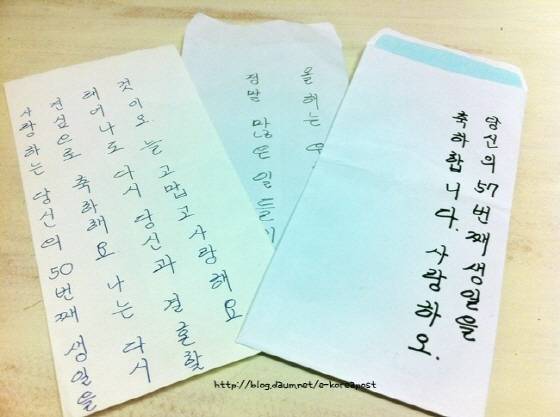 사랑하는 당신의 50번째 생일을
진심으로 축하해요 나는 다시
태어나도 다시 당신과 결혼할
것이오 늘 고맙고 사랑해요
올해는
정말 많은 일들
당신의 57번째 생일을
축하합니다. 사랑하오.
http://blog.daum.net/e-koreapost